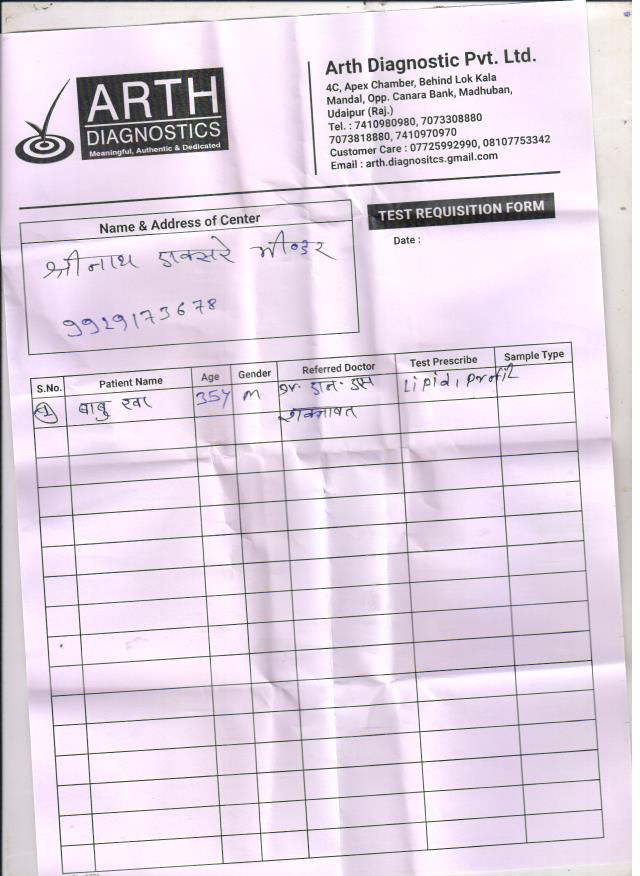 ARTH
DIAGNOSTICS
Meaningful, Authentic & Dedicated
Arth Diagnostic Pvt. Ltd.
4C, Apex Chamber, Behind Lok Kala
Mandal, Opp. Canara Bank, Madhuban,
Udaipur (Raj.)
Tel. : 7410980980, 7073308880
7073818880, 7410970970
Customer Care : 07725992990, 08107753342
Email : arth.diagnositcs.gmail.com
Name & Address of Center
श्रीनाथ एक्सरे भीण्डर
9929173678
TEST REQUISITION FORM
Date :
S.No. Patient Name Age Gender Referred Doctor Test Prescribe Sample Type
1 बाबु 35Y M Dr. Lipid, Profil
शक्तावत